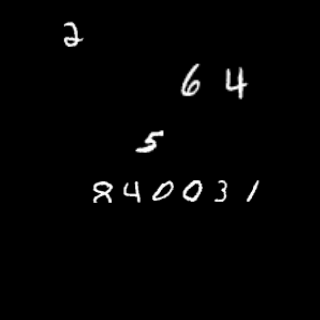 2
6 4
5
840031